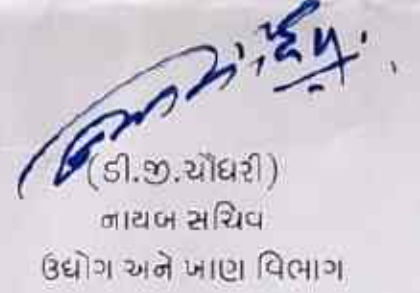 (ડી.જી.ચૌધરી)
નાયબ સચિવ
ઉદ્યોગ અને ખાણ વિભાગ